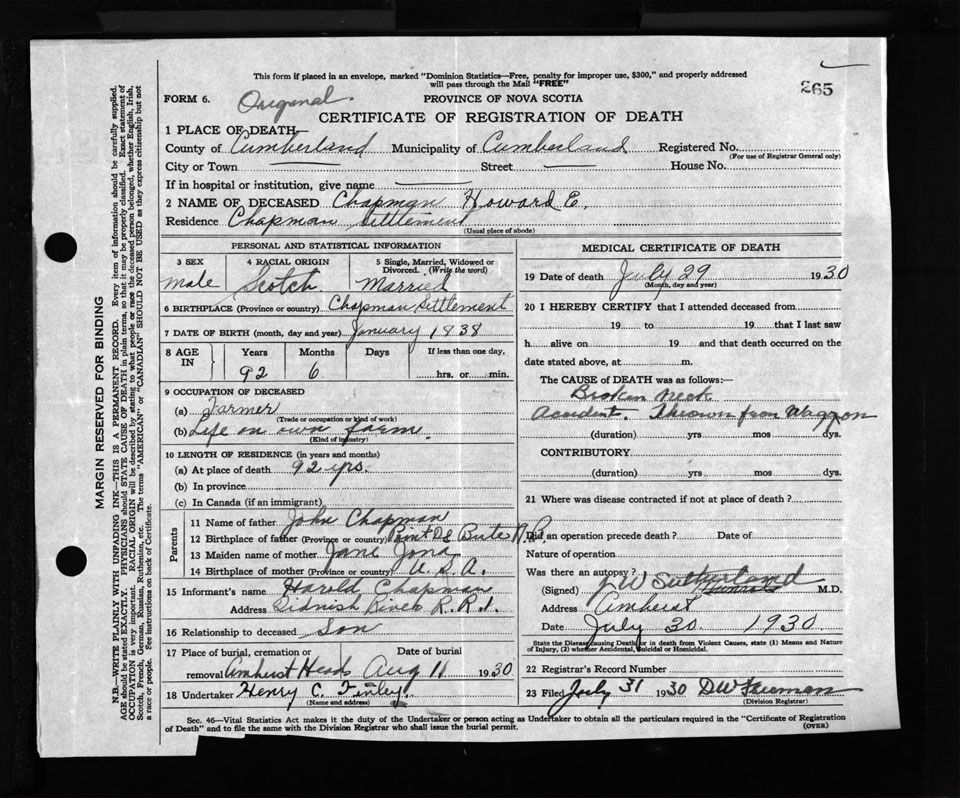 This form if placed in an envelope, marked "Dominion Statistics—Free, penalty for improper use, $300," and properly addressed
will pass through the Mail "FREE"
265
FORM 6. Original. PROVINCE OF NOVA SCOTIA
CERTIFICATE OF REGISTRATION OF DEATH
1 PLACE OF DEATH—
County of Cumberland Municipality of Cumberland Registered No.
(For use of Registrar General only)
City or Town Street House No.
If in hospital or institution, give name
2 NAME OF DECEASED Chapman Howard E.
Residence Chapman Settlement
(Usual place of abode)
PERSONAL AND STATISTICAL INFORMATION
3 SEX 4 RACIAL ORIGIN 5 Single, Married, Widowed or Divorced. (Write the word)
male Scotch Married
6 BIRTHPLACE (Province or country) Chapman Settlement
7 DATE OF BIRTH (month, day and year) January 1838
8 AGE IN Years Months Days If less than one day,
92 6 hrs. or min.
9 OCCUPATION OF DECEASED
(a) Farmer
(Trade or occupation or kind of work)
(b) Life on own farm.
(Kind of industry)
10 LENGTH OF RESIDENCE (in years and months)
(a) At place of death 92 yrs.
(b) In province
(c) In Canada (if an immigrant)
Parents
11 Name of father John Chapman
12 Birthplace of father (Province or country) Point De Bute N.B.
13 Maiden name of mother Jane
14 Birthplace of mother (Province or country) U.S.A.
15 Informant's name Harold Chapman
Address Tidnish River R.R.1.
16 Relationship to deceased Son
17 Place of burial, cremation or Date of burial
removal Amherst Head Aug 1 1930
18 Undertaker Henry C. Finley.
(Name and address)
MEDICAL CERTIFICATE OF DEATH
19 Date of death July 29 1930
(Month, day and year)
20 I HEREBY CERTIFY that I attended deceased from
19 to 19 that I last saw
h alive on 19 and that death occurred on the
date stated above, at m.
The CAUSE OF DEATH was as follows:—
Broken neck
Accident. Thrown from Waggon
(duration) yrs mos dys.
CONTRIBUTORY
(duration) yrs mos dys.
21 Where was disease contracted if not at place of death?
Did an operation precede death? Date of
Nature of operation
Was there an autopsy?
(Signed) J W Sutherland M.D.
Address Amherst
Date July 30. 1930.
State the Disease causing Death, or in death from Violent Causes, state (1) Means and Nature
of Injury, (2) whether Accidental, Suicidal or Homicidal.
22 Registrar's Record Number
23 Filed July 31 1930 D W Freeman
(Division Registrar)
Sec. 46—Vital Statistics Act makes it the duty of the Undertaker or person acting as Undertaker to obtain all the particulars required in the "Certificate of Registration
of Death" and to file the same with the Division Registrar who shall issue the burial permit.
(OVER)
MARGIN RESERVED FOR BINDING
N.B.—WRITE PLAINLY WITH UNFADING INK—THIS IS A PERMANENT RECORD. Every item of information should be carefully supplied.
AGE should be stated EXACTLY. PHYSICIANS should STATE CAUSE OF DEATH in plain terms, so that it may be properly classified. Exact statement of
OCCUPATION is very important. RACIAL ORIGIN will be described by stating to what people or race the deceased person belonged, whether English, Irish,
Scotch, French, German, Russian, Ruthenian, etc. The terms "AMERICAN" or "CANADIAN" SHOULD NOT BE USED as they express citizenship but not
a race or people. See instructions on back of Certificate.